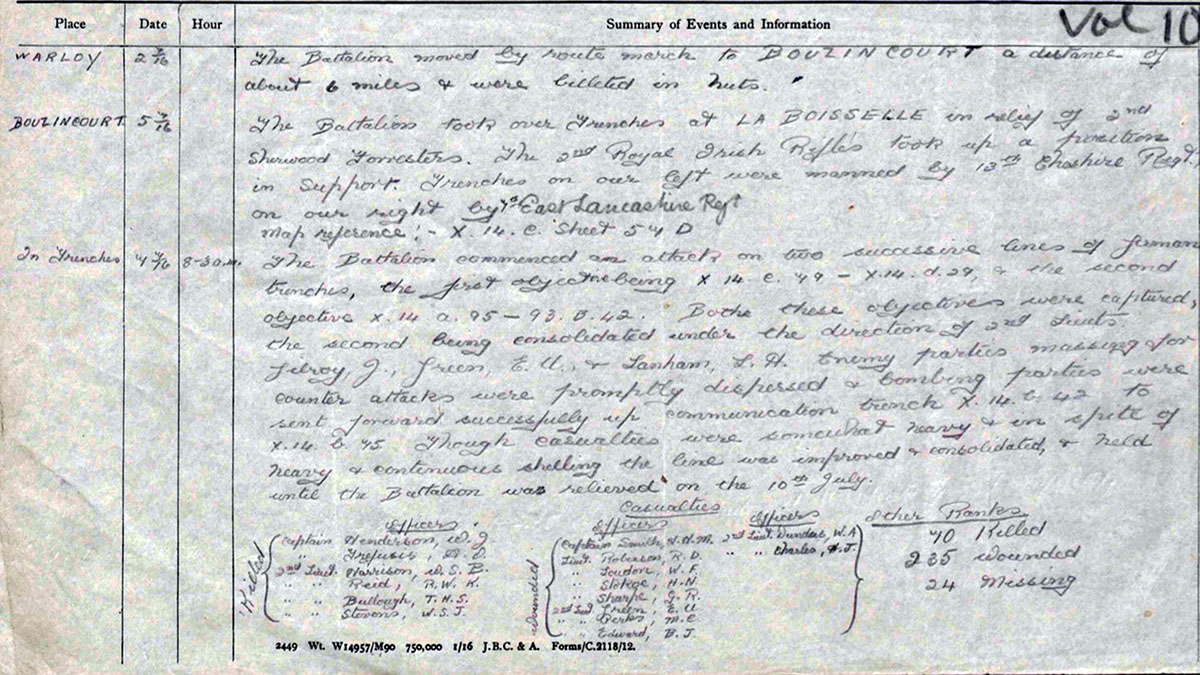 Place Date Hour Summary of Events and Information Vol 10
WARLOY 2 7/16 The Battalion moved by route march to BOUZINCOURT a distance of
about 6 miles & were billeted in huts.
BOUZINCOURT 5 7/16 The Battalion took over Trenches at LA BOISSELLE in relief of 2nd
Sherwood Forresters. The 2nd Royal Irish Rifles took up a position
in Support. Trenches on our left were manned by 13th Cheshire Regt.
on our right by 7th East Lancashire Regt
Map reference :- X. 14. C. Sheet 57 D
In Trenches 7 7/16 8-30 The Battalion commenced an attack on two successive lines of German
trenches, the first objective being X 14. c. 79 - X.14. d. 29, & the second
objective X. 14 a. 95 - 93. B. 42. Both these objectives were captured,
the second being consolidated under the direction of 2nd Lieuts
Gilroy, J., Green, E. U., & Lanham, L. H. Enemy parties massing for
counter attacks were promptly dispersed & bombing parties were
sent forward successfully up communication trench X. 14. b. 42 to
X. 14. b. 45 Though casualties were somewhat heavy & in spite of
heavy & continuous shelling the line was improved & consolidated, & held
until the Battalion was relieved on the 10th July.
Casualties
Officers Officers Officers Other Ranks
Killed Captain Henderson, W. J. wounded Captain Smith, 2nd Lieut. Dundas, W. A 70 Killed
" Trefusis, Lieut. Roberson, R. D. " " Charles, H. J. 235 wounded
2nd Lieut. Harrison, W. S. B. " Loudon, W. F. 24 Missing
" " Reid, R. W. K. " H. N.
" " Bullough, T. H. S. " Sharpe, G. R.
" " Stevens, W. S. J. 2nd Lieut. Green, E. U
" " Perks, M. C
" " Edward, B. J.
2449 Wt. W14957/M90 750,000 1/16 J.B.C. & A. Forms/C.2118/12.